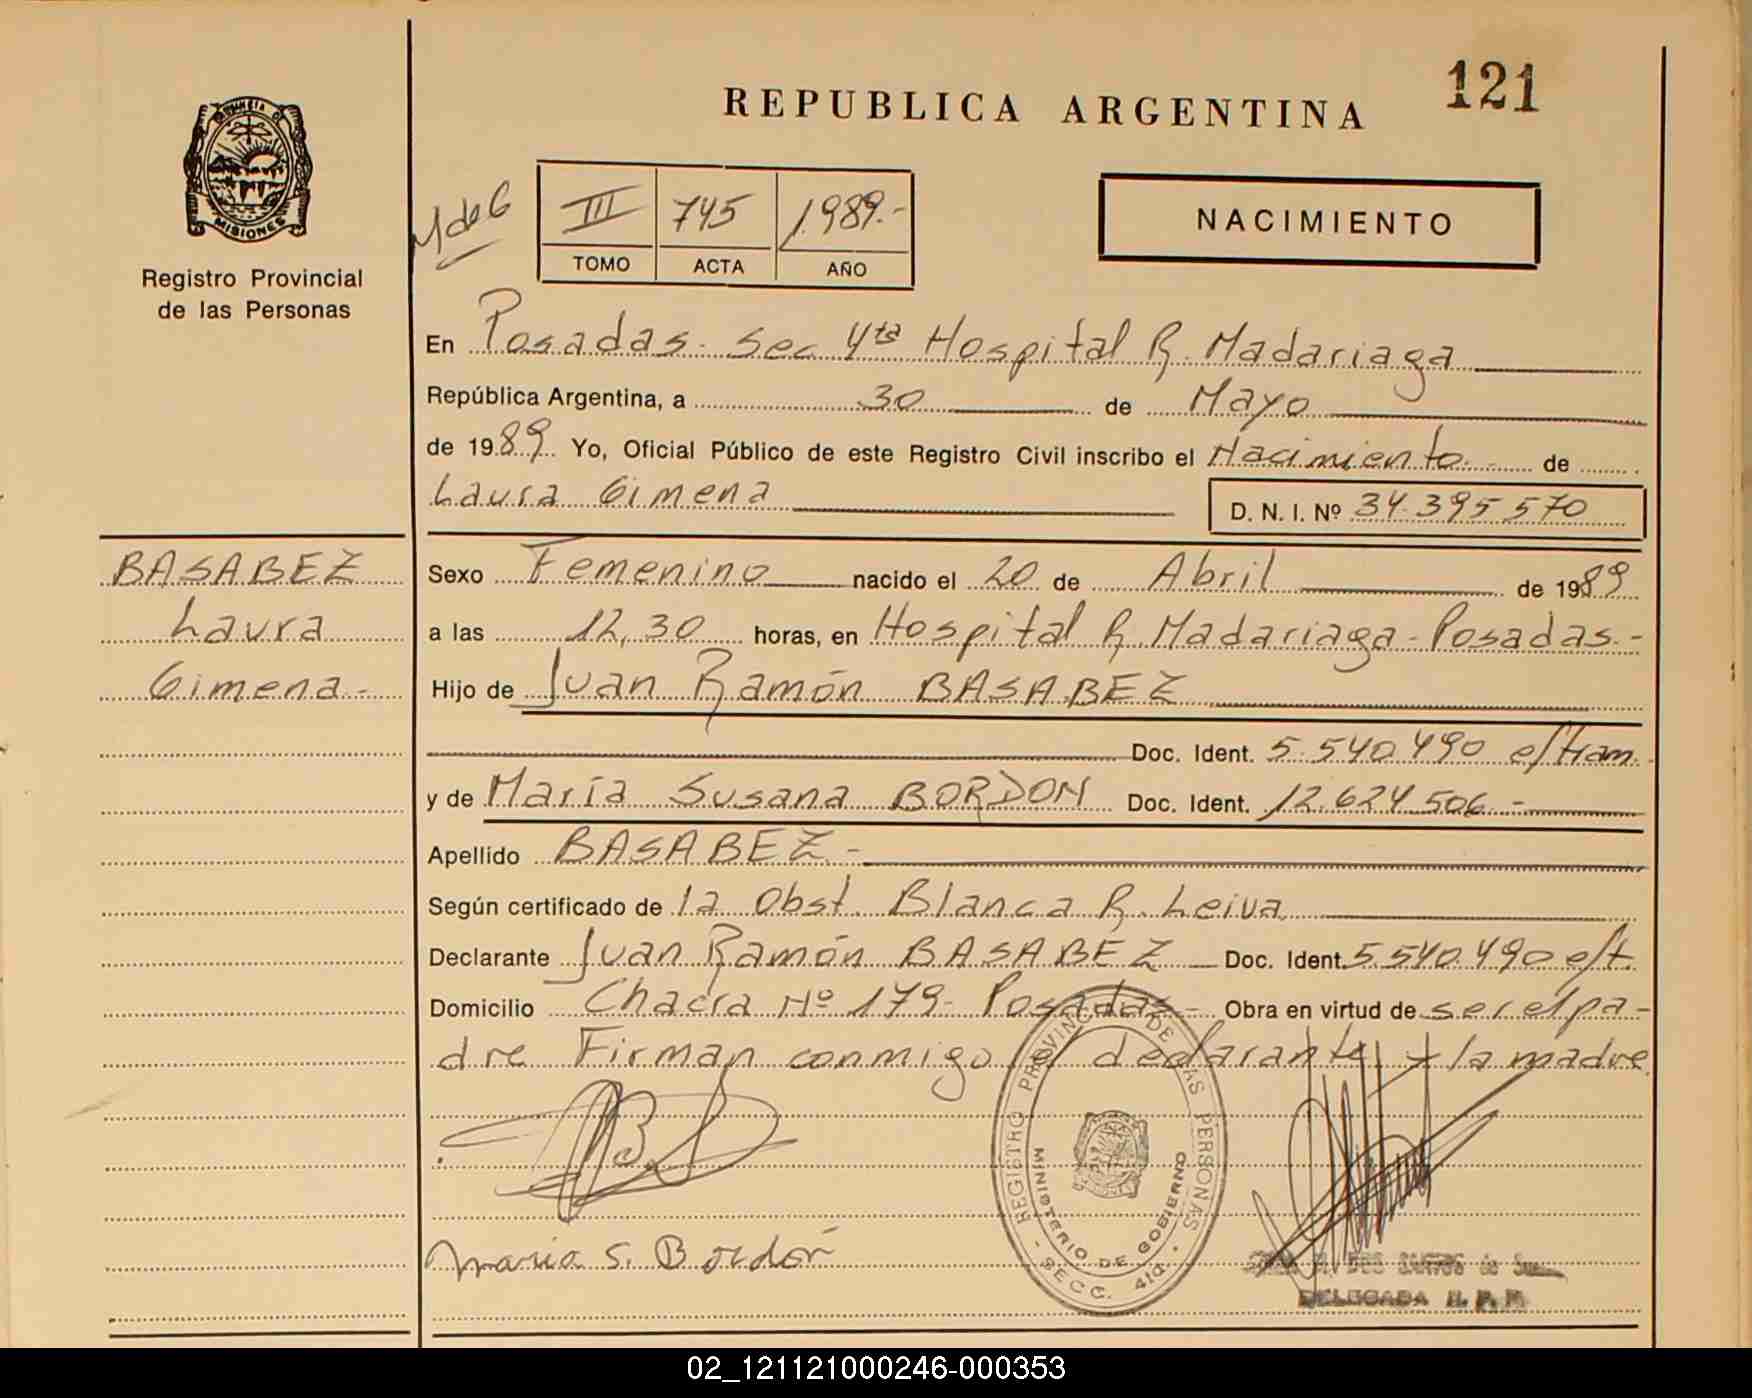 REPUBLICA ARGENTINA
121
MISIONES
Registro Provincial
de las Personas
III 745 1989.-
TOMO ACTA AÑO
NACIMIENTO
En Posadas. Sec 4ta Hospital R. Madariaga
República Argentina, a 30 de Mayo
de 1989. Yo, Oficial Público de este Registro Civil inscribo el Nacimiento. de
Laura Gimena
D. N. I. Nº 34.395 570
BASABEZ
Laura
Gimena.-
Sexo Femenino nacido el 20 de Abril de 1989
a las 12,30 horas, en Hospital R. Madariaga-Posadas.-
Hijo de Juan Ramón BASABEZ
Doc. Ident. 5.540.490 e/tram.
y de María Susana BORDON Doc. Ident. 12.624.506.-
Apellido BASABEZ.-
Según certificado de la Obst. Blanca R. Leiva
Declarante Juan Ramón BASABEZ Doc. Ident. 5.540.490 e/t.
Domicilio Chacra Nº 179- Posadas.- Obra en virtud de ser el pa-
dre Firman conmigo el declarante y la madre
REGISTRO PROVINCIAL DE LAS PERSONAS
MINISTERIO DE GOBIERNO
- SECC. 4ta -
Maria S. Bordón
DOS SANTOS de
DELEGADA R. P. P.
02_121121000246-000353